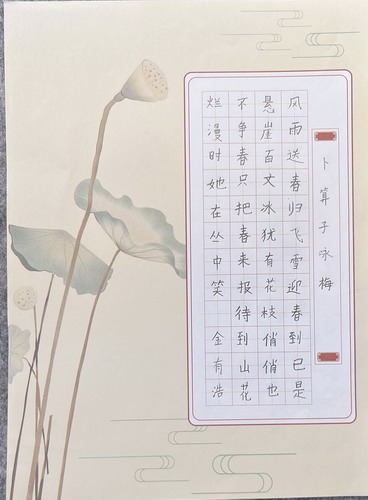 卜算子咏梅
风雨送春归飞雪迎春到已是
悬崖百丈冰犹有花枝俏俏也
不争春只把春来报待到山花
烂漫时她在丛中笑 金有浩